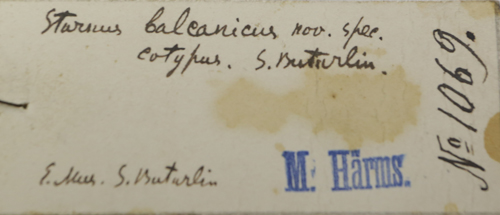 Sturnus balcanicus nov. spec.
cotypus. S. Buturlin.
E. Mus. S. Buturlin
M. Härms.
№ 1069.